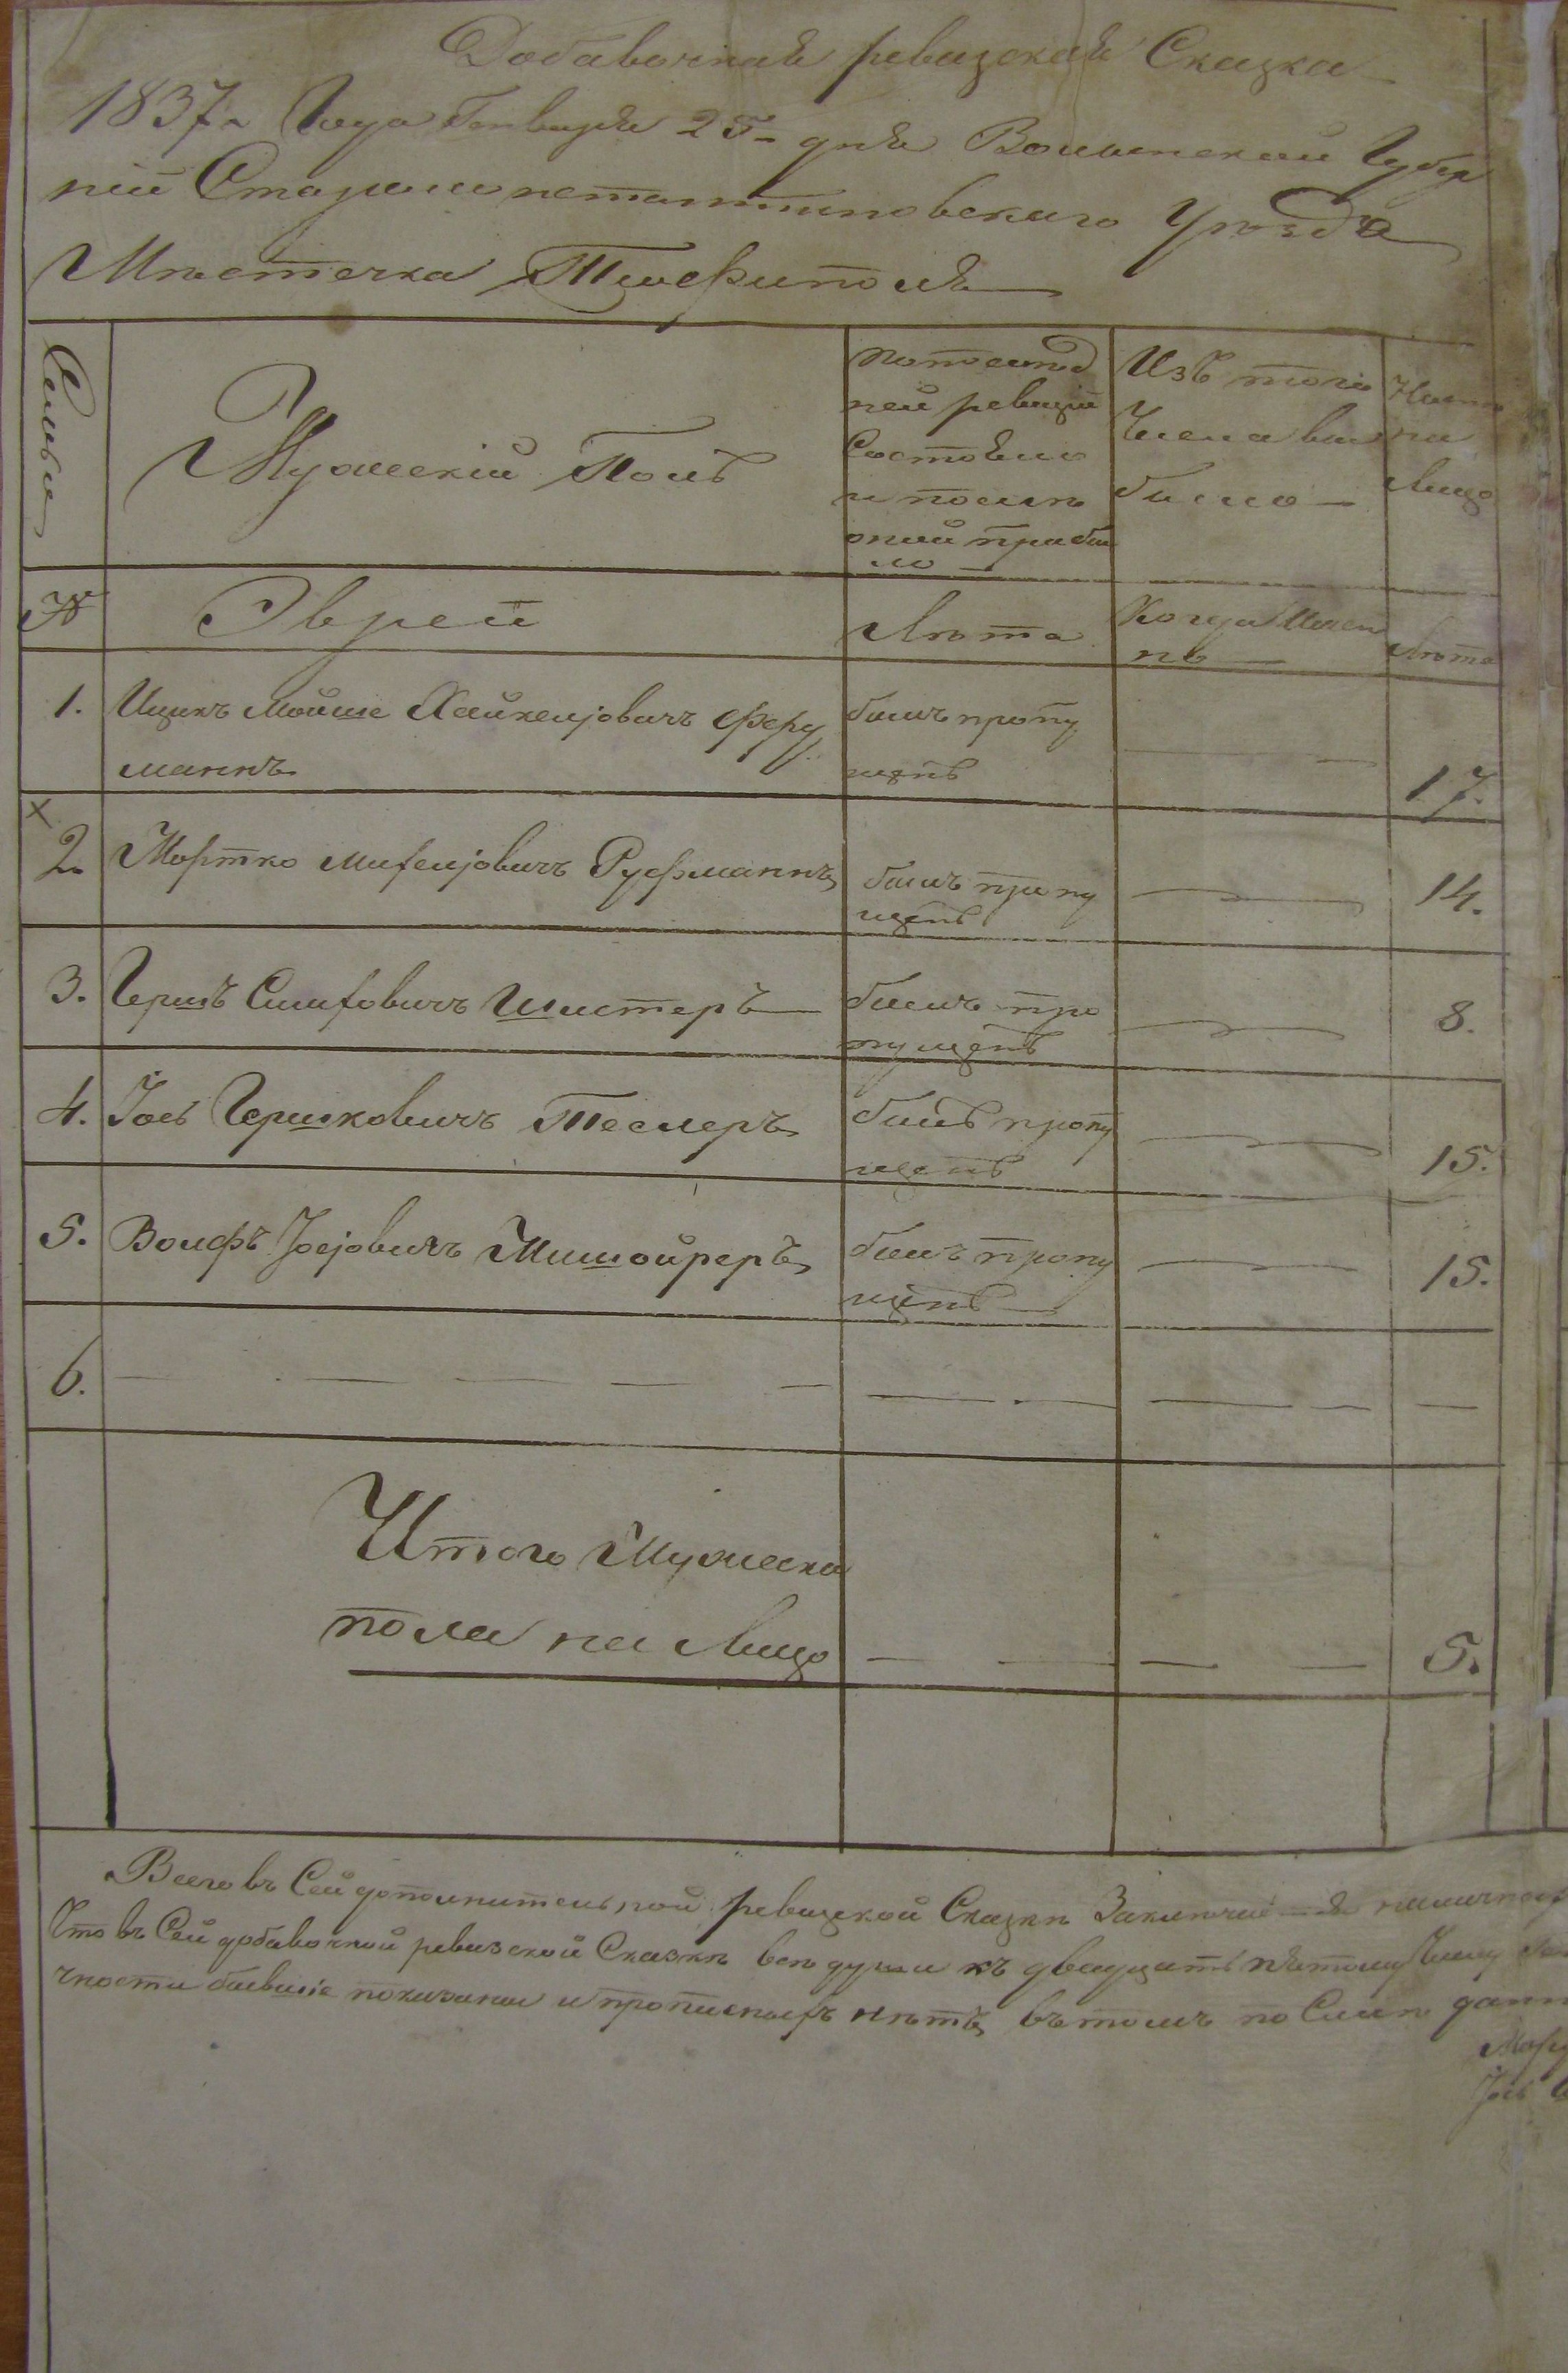 Добавочная ревизская Сказка
1837 Года Генваря 25 дня Волынской Губер
нии Староконстантиновского Уѣзда
Мѣстечка Теофиполя
Семьи
Мужескій Полъ
по послѣд
ней ревизіи
Состояло
и послѣ
оной прибы
ло
Изъ того
Числа вы
было
Ныне
на
Лицо
№
Эвреи
Лѣта
Когда Имен
нѣ
Лѣта
1.
Ицикъ Мойше Хайкелjовичъ Фер
манъ
былъ пропу
щенъ
17.
2.
Мортко Михелjовичъ Руфманнъ
былъ пропу
щенъ
14.
3.
Гершъ Симховичъ Шистеръ
былъ про
пущенъ
8.
4.
Іось Гершковичъ Теслеръ
былъ пропу
щенъ
15.
5.
Волфъ Іосjовичъ Мишойреръ
былъ пропу
щенъ
15.
6.
Итого Мужеска
пола на Лицо
5.
Всего въ Сей дополнительной ревизской Сказкѣ наличност
Что въ Сей добавочной ревизской Сказкѣ всѣ души къ двадцать пятому Числу
чности бывшіе показаны и прописныхъ нѣтъ въ томъ по Силѣ данн
Іось